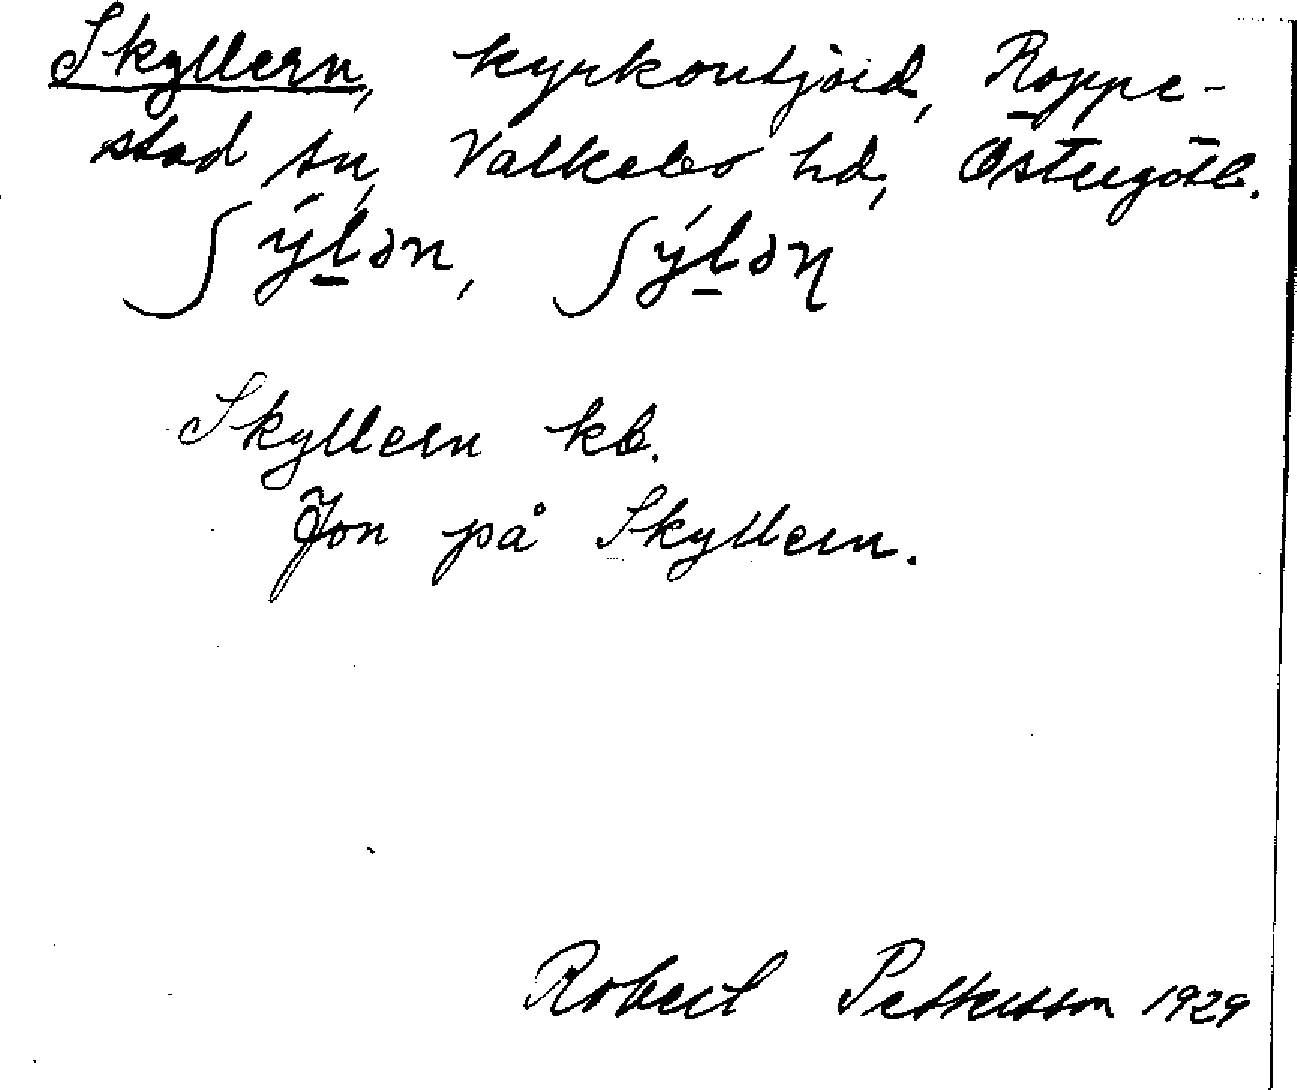 Skyllern, kyrkoutjord, Rappe-
stad sn, Valkebo hd, Östergötl.
ʃýl̲ən, ʃýl̲əɳ
Skyllern kb.
Jon på Skyllern.
Robert Pettersson 1929